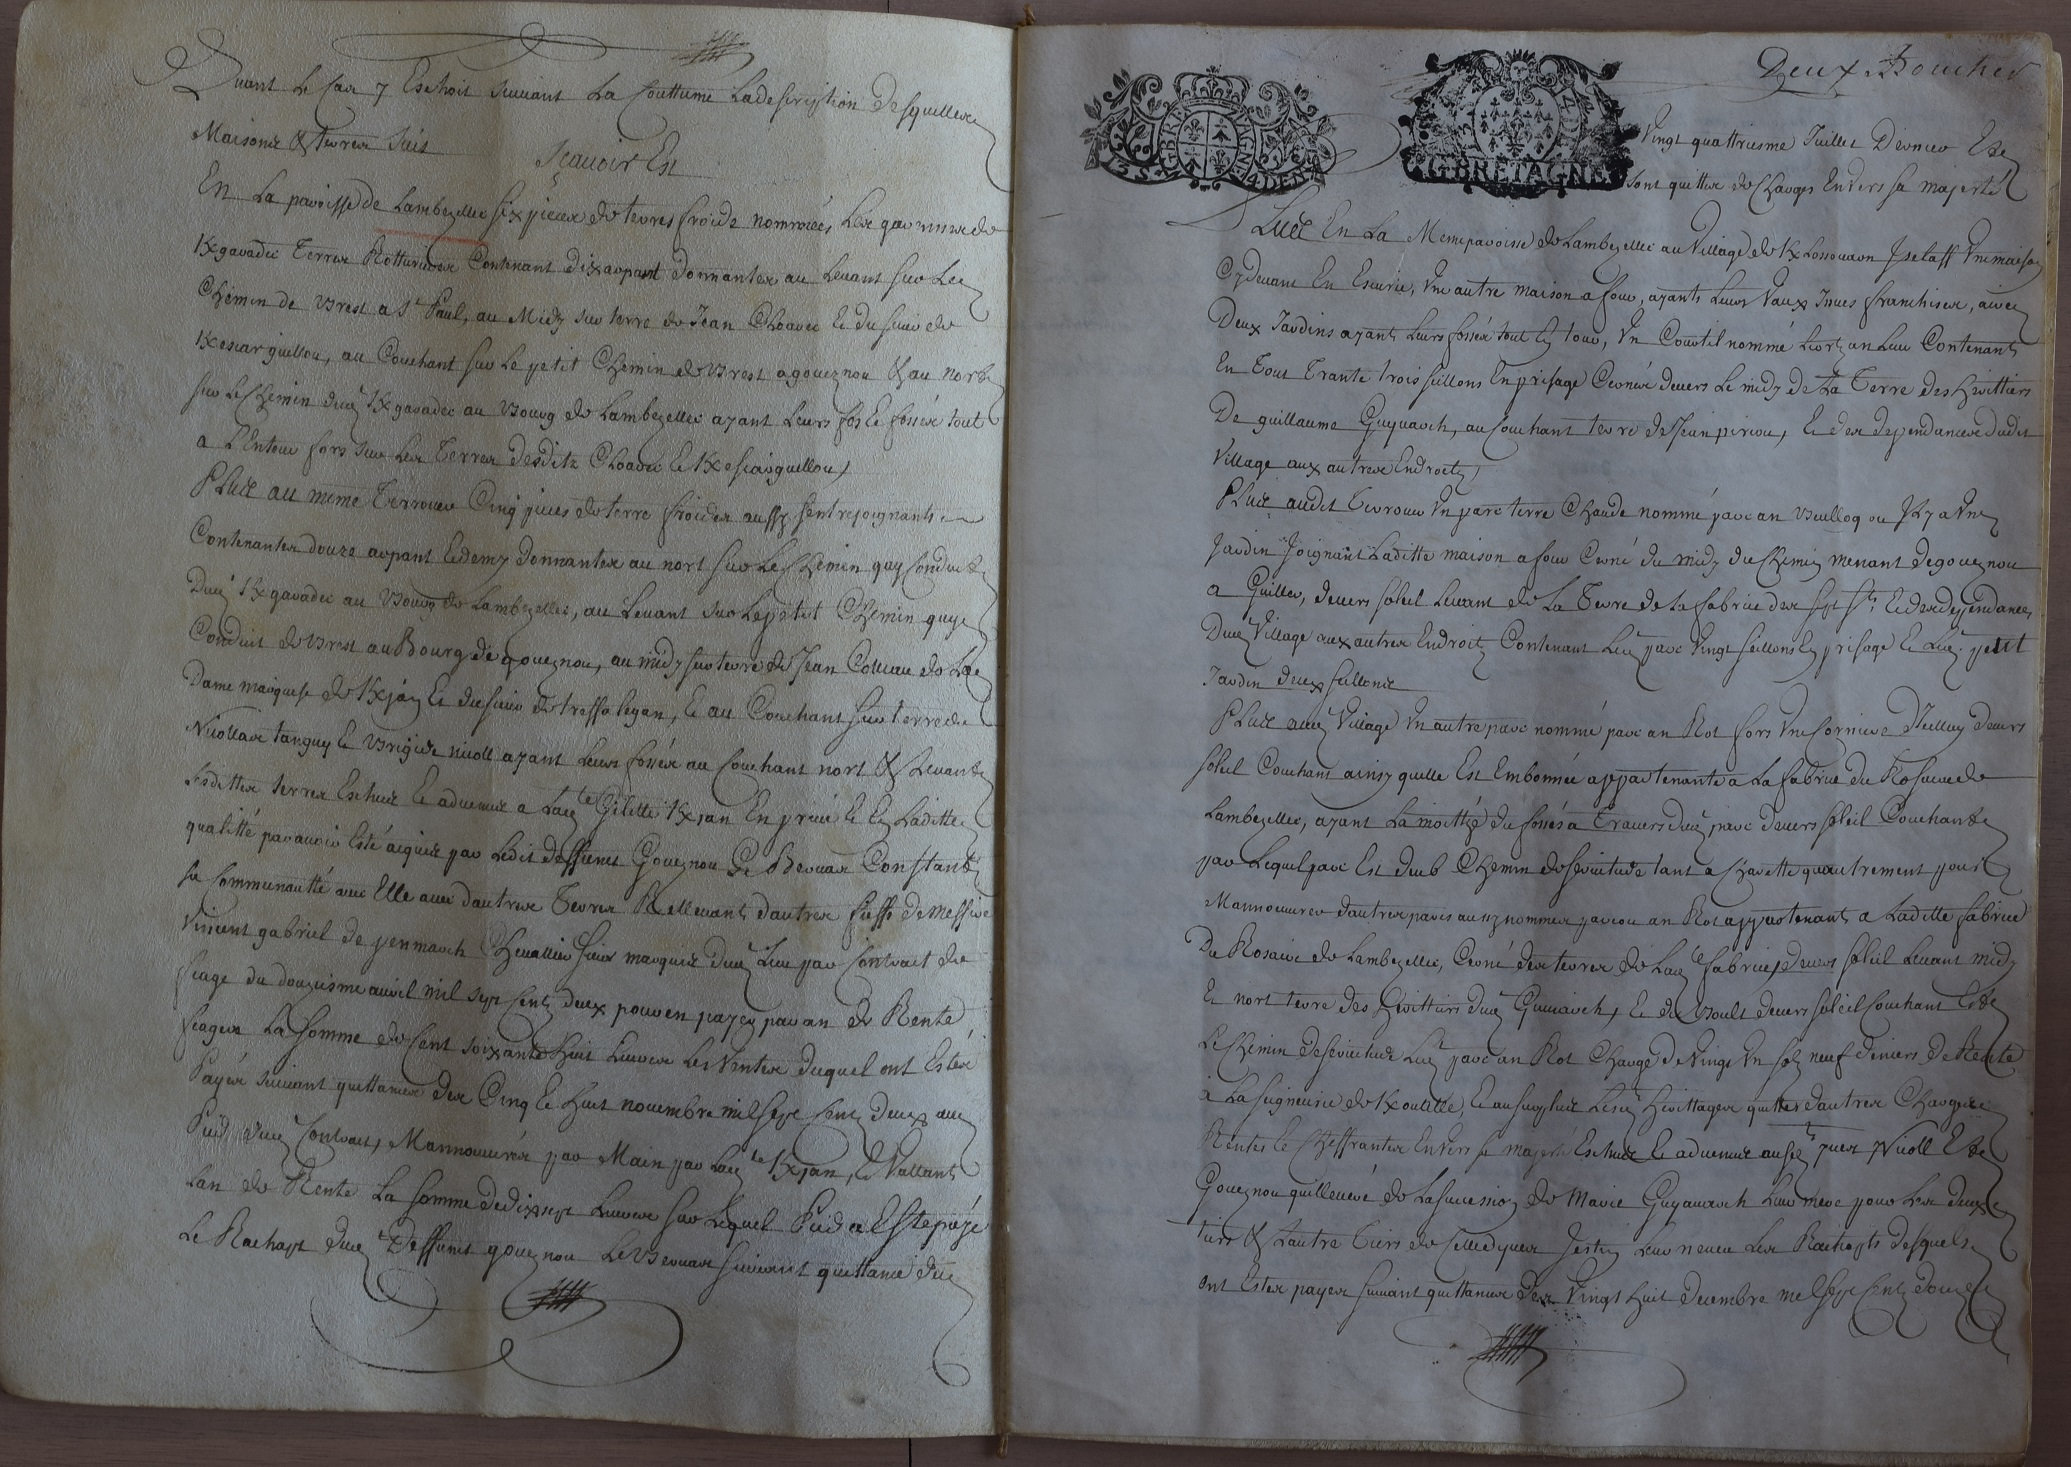 Quant le Cas y Eschoit suivant La Couttume Ladescription Desquelles
Maisons & terres suis
Sçavoir Est
En La paroisse de Lambezellec six pieces de terres froide nommées Les
Kgaradec Terres Rotturieres Contenant dix arpant donnantes au Levant sur Le
Chemin de Brest a St Paul, au Midy sur terre de Jean Choarec & du sieur de
Kescarguillou, au Couchant sur Le petit Chemin de Brest a goueznou & au nort
sur Le Chemin dud Kgaradec au Bourg de Lambezellec ayant Leurs fos & fossés tout
a L'Entour fors sur Les Terres desdits Choarec & Kescarguillou,
PLus au meme Terrouer Cinq pieces de terre froides aussy s'entrejoignants
Contenantes douze arpant & demy donnantes au nort sur Le Chemin quy Conduit
Dud Kgaradec au Bourg de Lambezellec, au Levant sur Le petit Chemin quy
Conduit de Brest au Bourg de goueznou, au midy sur terre de Jean de La
Dame marquise de Kjan Et du sieur de treffalegan, & au Couchant sur terre de
Nicollas tanguy & Brigide nicoll ayant Leurs fossés au Couchant nort & Levant
Lsdittes terres Eschues & advenues a Lad te Gilette Kjan En privé & En Laditte
qualitté par avoir Esté acquis par Ledit deffunct Goueznou Le Berouar Constant
sa Communautté avec Elle avec dautres Terres Rellevants dautres fieffs de Messire
Vincent gabriel de penmarch Chevallier sieur marquis dud Lieu par Contrait de
feage du douziesme avril mil sept Cents deux pour en payer par an de Rente
feagere La Somme de Cent soixante Huit Livres Les Ventes duquel ont Estés
Payés suivant quittances des Cinq & Huit novembre mil sept Cents deux au
Pied dud Contrait, Mannouvrés par Main par Lad te Kjan, & Vallants
Lan de Rente La somme de dix sept Livres sur Lequel Pied a Esté payé
Le Rachapt dud Deffunct goueznou Le Berouar suivant quittance du
Deux Bouches
G.BRETAGNE
Vingt quattriesme Juillet Dernier Et
sont quittes de Charges Envers sa majesté
PLus En La Meme paroisse de Lambezellec au Village de KLossouarn Iselaff Une maison
Cy devant En Escurie, Une autre maison a four, ayants Leurs Vaux Inues franchises, avec
Deux Jardins ayants Leurs fossés tout En tour, Un Courtil nommé Liorz an Leur Contenant
En Tout Trante trois seillons En prisage Cernés devers Le midy de La Terre des Heritiers
De guillaume Guyvarch, au Couchant terre de Jean piriou, & des dependances dudit
Village aux autres Endroits,
PLus audit Terrouer Un parc terre Chaude nommé parc an Buellocq ou Il y a Une
Jardin Joignant Laditte maison a four Cerné du midy du Chemin menant de goueznou
a Guiller, devers soleil Levant de La Terre de La fabrice des sept Sts & des dependances
Dud Village aux autres Endroits Contenant Led parc Vingt seillons En prisage & Led petit
Jardin deux seillons
PLus aud Village Un autre parc nommé parc an Rot fors Une Corniere devers
soleil Couchant ainsy quelle Est Embonnée appartenante a La fabrice du Rosaire de
Lambezellec, ayant La moittyé du fossés a Travers dud parc devers soleil Couchant
par Lequel parc Est deub Chemin de servitude tant a Charette quautrement pour
Mannouvrer dautres parcs aussy nommés parcou an Rot appartenants a Laditte fabrice
Du Rosaire de Lambezellec, Cerné des terres de Lad fabrice, devers soleil Levant midy
& nort terre des Heritiers dud Guivarch, & du Boult devers soleil Couchant & de
Le Chemin de servitude Led parc an Rot Chargé de Vingt Un sols neuf deniers de Rente
a La seigneurie de Koulette, & au surplus Lesd Heritages quittes dautres Charges
Rentes & Cheffrantes Envers sa majesté Eschues & advenues ausd yves Nicoll &
Goueznou quilleneve de La succession de Marie Guyavarch Leur mere pour Les deux
tiers & Lautre Tiers de Celle d'yves Jestin Leur neveu Les Rachapts desquels
ont Estés payés suivant quittances des Vingt Huit decembre mil sept Cents douze